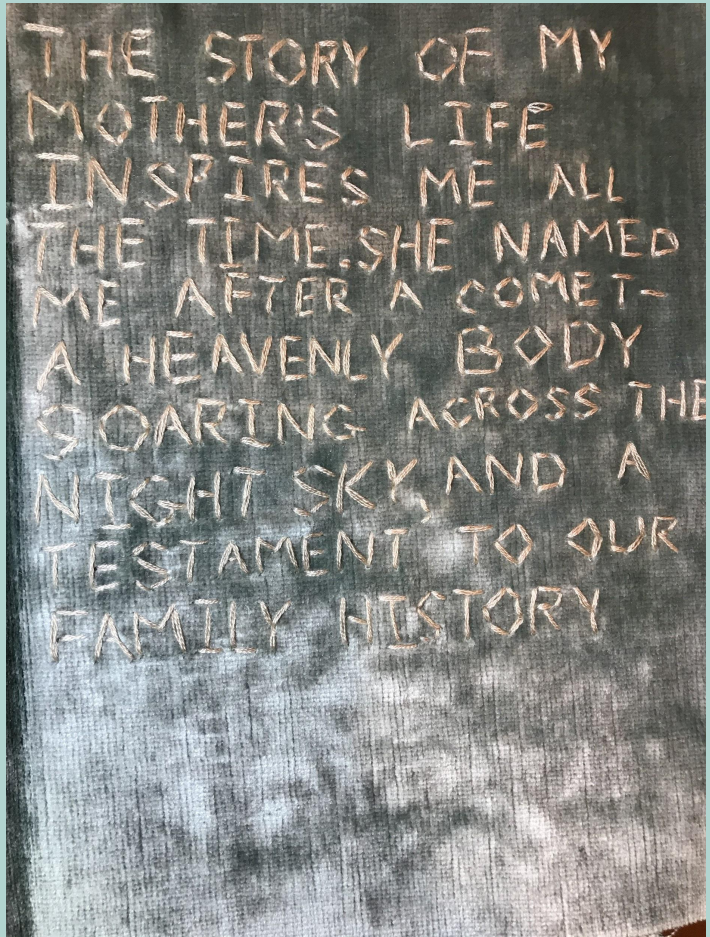 THE STORY OF MY
MOTHER'S LIFE
INSPIRES ME ALL
THE TIME. SHE NAMED
ME AFTER A COMET-
A HEAVENLY BODY
SOARING ACROSS THE
NIGHT SKY, AND A
TESTAMENT TO OUR
FAMILY HISTORY